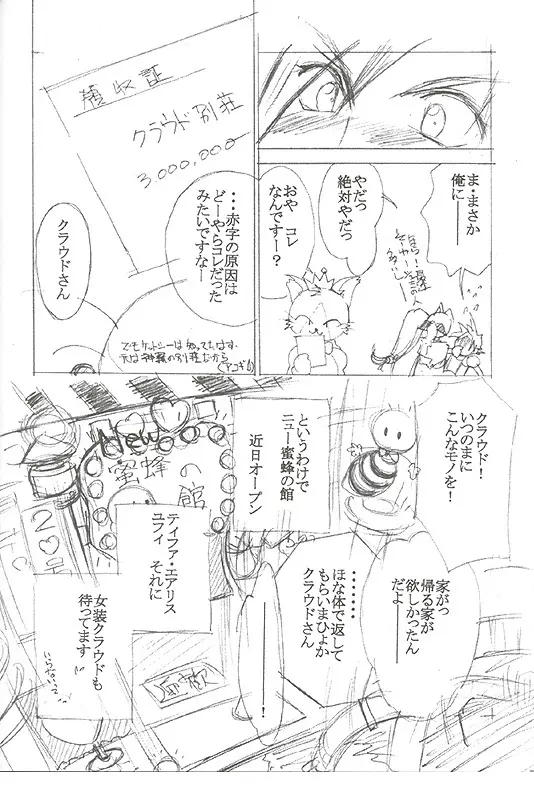 ま・まさか
俺に――
やだっ
絶対やだっ
おや コレ
なんですー？
領収証
クラウド別荘
3,000,000-
・・・・赤字の原因は
どーやらコレだった
みたいですなー
クラウドさん
でもケットシーは知ってたはず
元は神羅の別荘だから
クラウド！
いつのまに
こんなモノを！
家がっ
帰る家が
欲しかったん
だよ――
・・・・・・・
ほな体で返して
もらいまひょか
クラウドさん
！
というわけで
ニュー蜜蜂の館
近日オープン
New
蜜蜂の館
ティファ・エアリス
ユフィ
それに
女装クラウドも
待ってます
いらないって